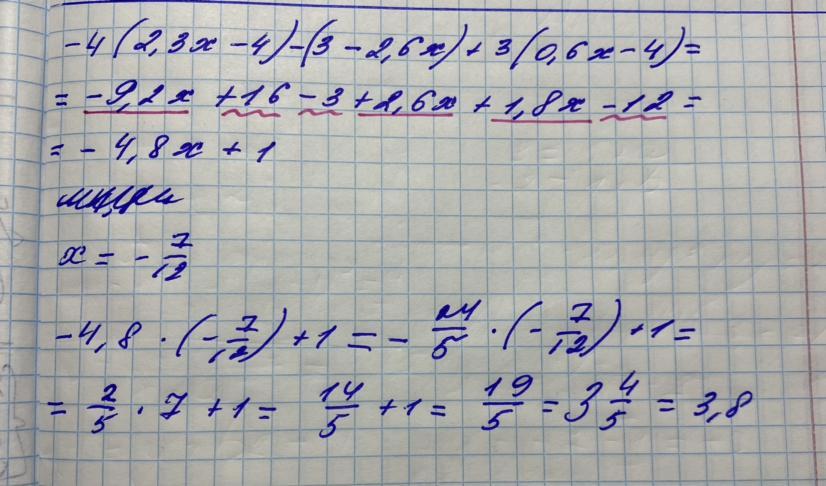 -4(2,3x-4)-(3-2,6x)+3(0,6x-4)=
= -9,2x +16 -3 +2,6x +1,8x -12 =
= -4,8x + 1
x = - 7/12
-4,8 · (- 7/12) + 1 = - 24/5 · (- 7/12) + 1 =
= 2/5 · 7 + 1 = 14/5 + 1 = 19/5 = 3 4/5 = 3,8